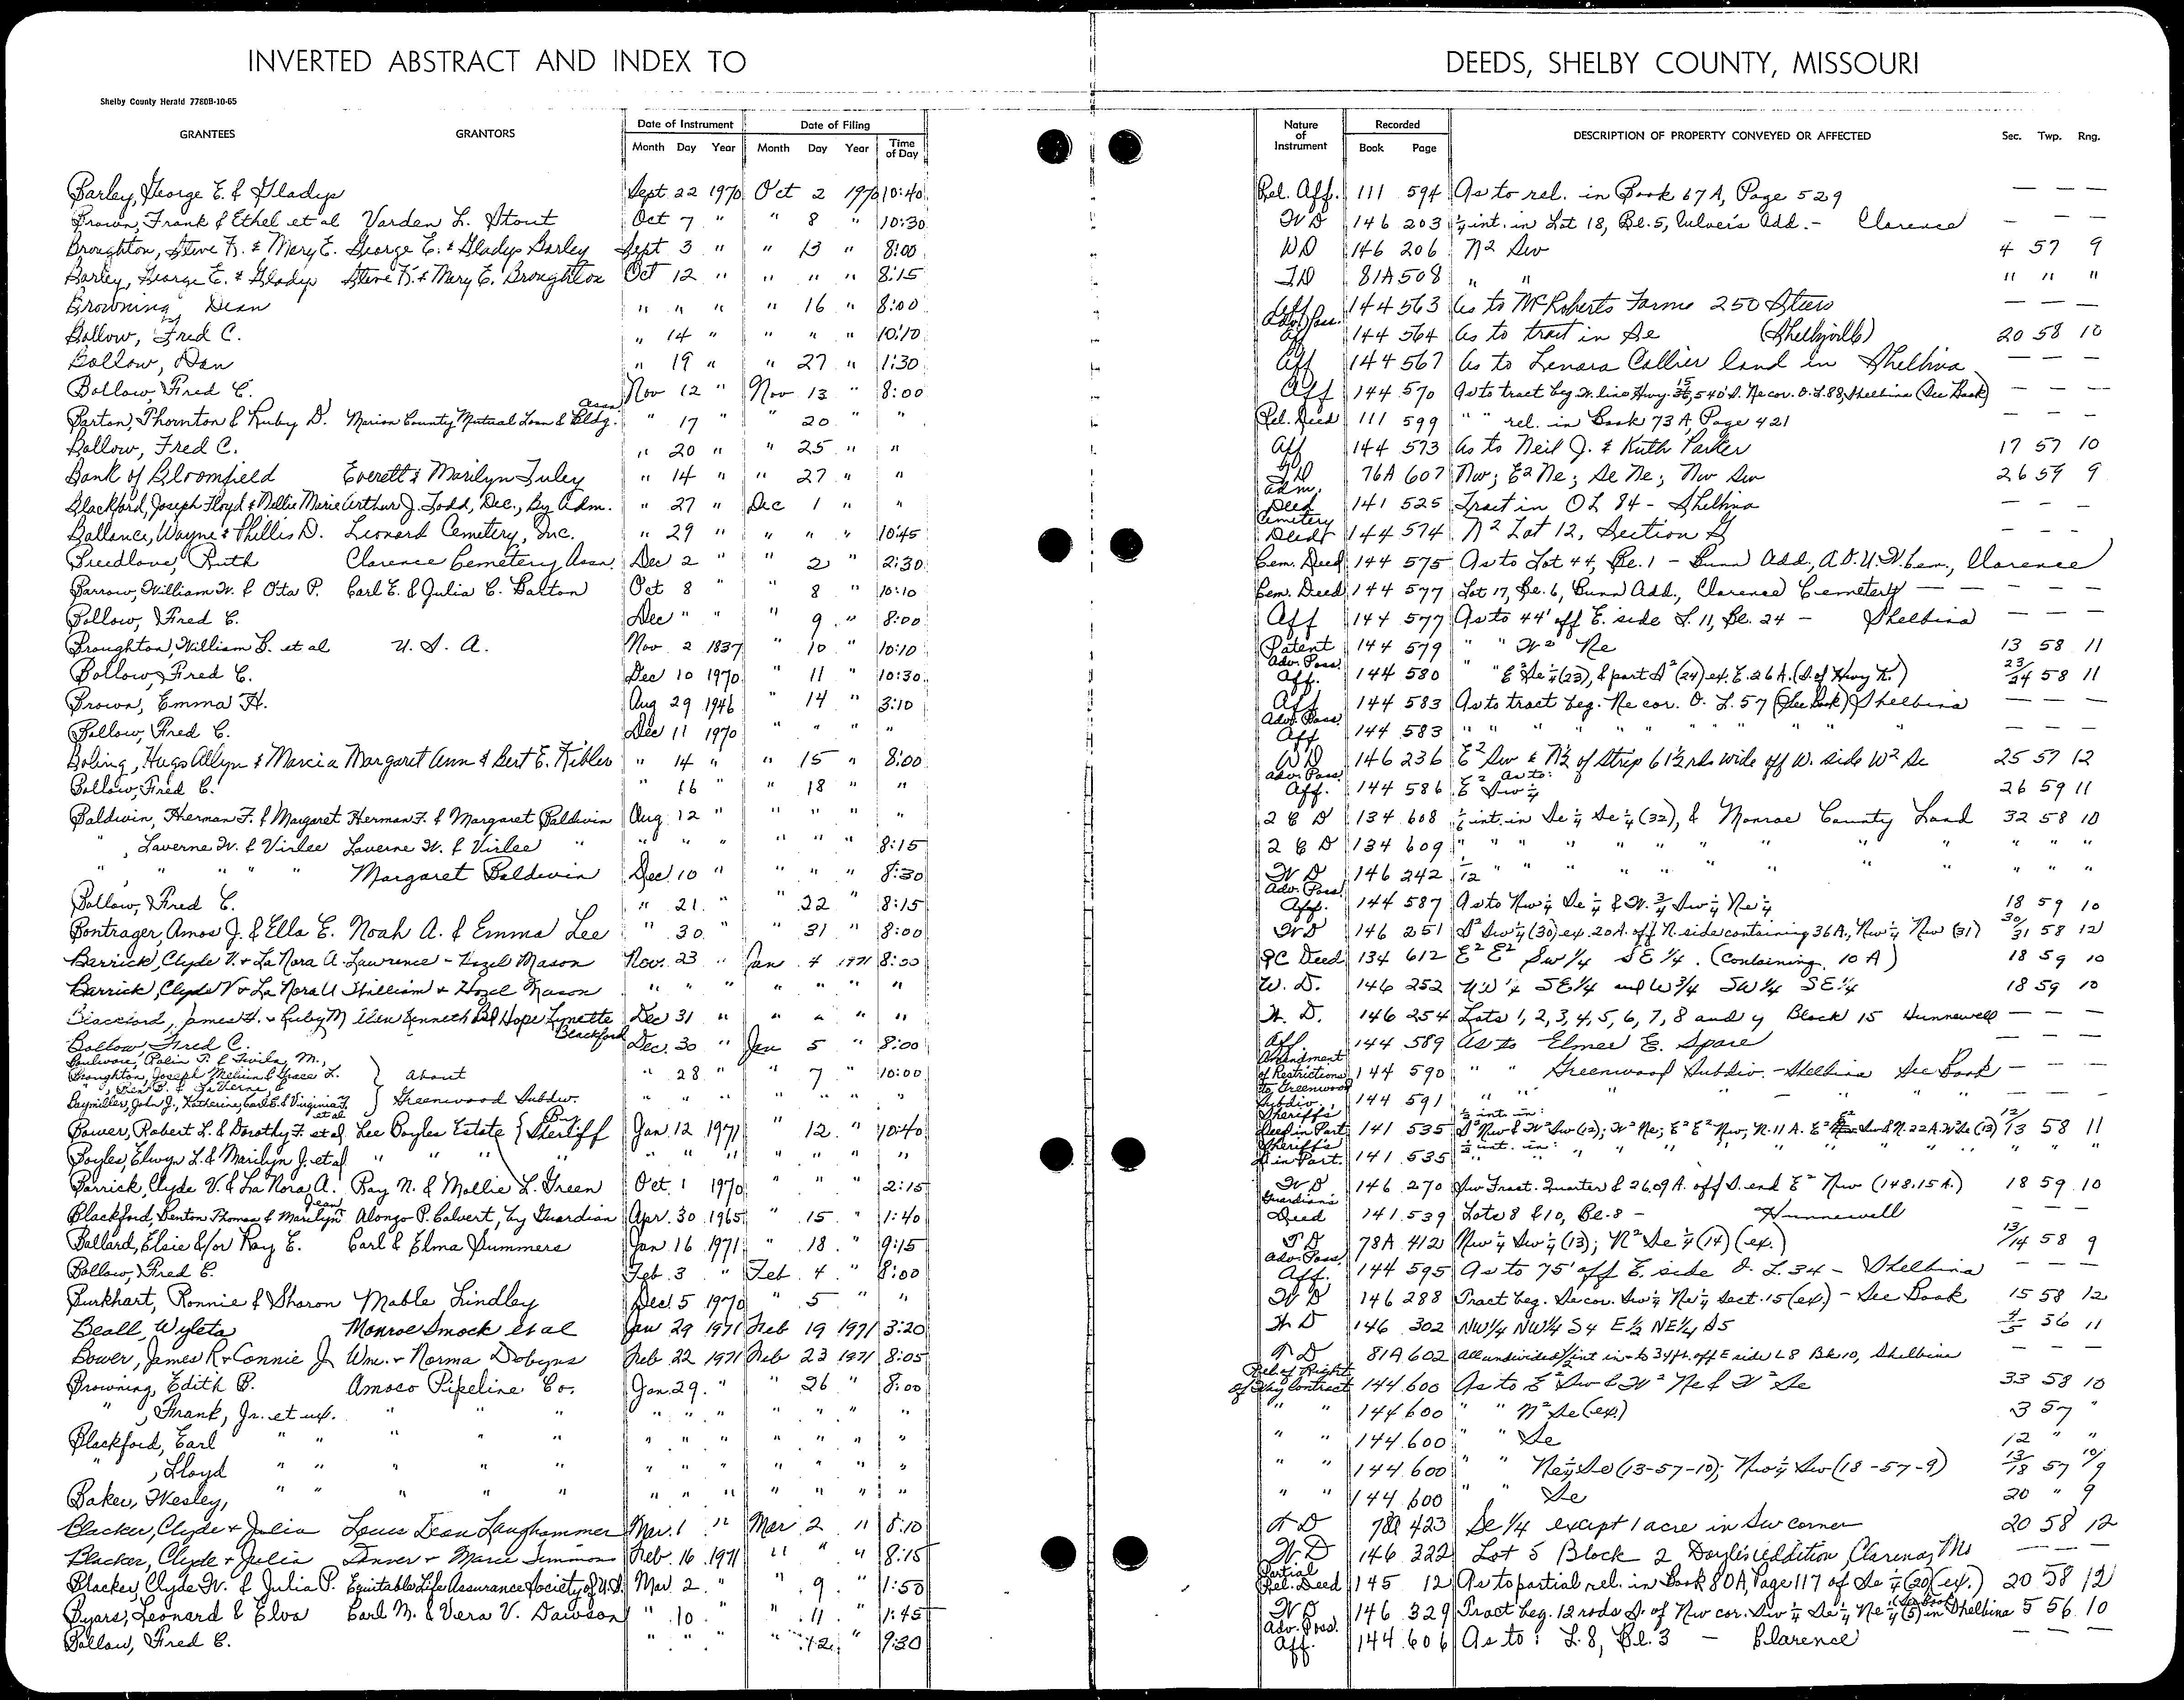 INVERTED ABSTRACT AND INDEX TO DEEDS, SHELBY COUNTY, MISSOURI
Shelby County Herald 7780B-10-65
GRANTEES GRANTORS Date of Instrument Date of Filing Nature of Instrument Recorded DESCRIPTION OF PROPERTY CONVEYED OR AFFECTED Sec. Twp. Rng.
Month Day Year Month Day Year Time of Day Book Page
Barley, George E. & Gladys Sept 22 1970 Oct 2 1970 10:40 Rel. Aff. 111 594 As to rel. in Book 67A, Page 529 — — —
Brown, Frank & Ethel et al Varden L. Stout Oct 7 " " 8 " 10:30 WD 146 203 int. in Lot 18, Bl. 5, Culver's Add. - Clarence — — —
Broughton, Steve K. & Mary E. George E. & Gladys Barley Sept 3 " " 13 " 8:00 WD 146 206 N2 Sw 4 57 9
Barley, George E. & Gladys Steve K. & Mary E. Broughton Oct 12 " " " " 8:15 TD 81A 508 " " " " "
Browning, Dean " " " " 16 " 8:00 Aff 144 563 As to McRoberts Farms 250 Steers — — —
Bollow, Fred C. " 14 " " " " 10:10 Adv. Poss. Aff 144 564 As to tract in Se (Shelbyville) 20 58 10
Bollow, Dan " 19 " " 27 " 1:30 Aff 144 567 As to Lenora Collier land in Shelbina — — —
Bollow, Fred C. Nov 12 " Nov 13 " 8:00 Aff 144 570 As to tract beg. W. line Hwy. 15, 540' S. Ne cor. O.L. 88, Shelbina (See Book) — — —
Barton, Thornton & Ruby D. Marion County Mutual Loan & Bldg. Assn " 17 " 20 " Rel. Deed 111 599 " " rel. in Book 73A, Page 421 — — —
Bollow, Fred C. " 20 " " 25 " " Aff 144 573 As to Neil J. & Ruth Parker 17 57 10
Bank of Bloomfield Everett & Marilyn Tuley " 14 " " 27 " " TD 76A 607 Nw; E2 Ne; Se Ne; Nw Sw 26 59 9
Blackford, Joseph Floyd & Nellie Marie Arthur J. Todd, Dec., By Adm. " 27 " Dec 1 " " Adm. Deed 141 525 Tract in OL 84 - Shelbina — — —
Ballance, Wayne & Phillis D. Leonard Cemetery, Inc. " 29 " " " " 10:45 Cemetery Deed 144 574 N2 Lot 12, Section G — — —
Breedlove, Ruth Clarence Cemetery Assn. Dec 2 " " 2 " 2:30 Cem. Deed 144 575 As to Lot 44, Bl. 1 - Bunn Add., A.O.U.W. Cem., Clarence — — —
Barrow, William W. & Ota P. Carl E. & Julia C. Dalton Oct 8 " " 8 " 10:10 Cem. Deed 144 577 Lot 17, Bl. 6, Bunn Add., Clarence Cemetery — — —
Bollow, Fred C. Dec " " " 9 " 8:00 Aff 144 577 As to 44' off E. side L. 11, Bl. 24 - Shelbina — — —
Broughton, William B. et al U. S. A. Nov. 2 1837 " 10 " 10:10 Patent 144 579 " " W2 Ne 13 58 11
Bollow, Fred C. Dec 10 1970 " 11 " 10:30 Adv. Poss. Aff. 144 580 " " E2 Se 1/4 (23), & part S2 (24) ex. E. 26 A. (S. of Hwy K.) 23/24 58 11
Brown, Emma H. Aug 29 1946 " 14 " 3:10 Aff 144 583 As to tract beg. Ne cor. O. L. 57 (See Book) Shelbina — — —
Bollow, Fred C. Dec 11 1970 " " " " Adv. Poss. Aff 144 583 " " " " " " " — — —
Boling, Hugo Allyn & Marcia Margaret Ann & Bert E. Kibler " 14 " " 15 " 8:00 WD 146 236 E2 Sw & N1/2 of Strip 61 1/2 rds wide off W. side W2 Se 25 57 12
Bollow, Fred C. " 16 " " 18 " " Adv. Poss. Aff. 144 586 As to: E2 Sw 1/4 26 59 11
Baldwin, Herman F. & Margaret Herman F. & Margaret Baldwin Aug 12 " " " " " Q C D 134 608 1/6 int. in Se 1/4 Se 1/4 (32), & Monroe County Land 32 58 10
" , Laverne W. & Virlee Laverne W. & Virlee " " " " " " " 8:15 Q C D 134 609 " " " " " " " " " " "
" " " " " Margaret Baldwin Dec. 10 " " " " 8:30 WD 146 242 1/12 " " " " " " " " "
Bollow, Fred C. " 21 " " 22 " 8:15 Adv. Poss. Aff. 144 587 As to Nw 1/4 Se 1/4 & W. 3/4 Sw 1/4 Ne 1/4 18 59 10
Bontrager, Amos J. & Ella E. Noah A. & Emma Lee " 30 " " 31 " 8:00 WD 146 251 S2 Sw 1/4 (30) ex. 20A. off N. side containing 36A., Nw 1/4 Nw (31) 30/31 58 12
Barrick, Clyde V. & La Nora A. Lawrence - Hazel Mason Nov. 23 " Jan 4 1971 8:00 QC Deed 134 612 E2 E2 SW 1/4 SE 1/4. (Containing 10 A) 18 59 10
Barrick, Clyde V & La Nora A William & Hazel Mason " " " " " " " W. D. 146 252 NW 1/4 SE 1/4 and W 3/4 SW 1/4 SE 1/4 18 59 10
Blackford, James H. & Ruby M Allen Kenneth & Hope Lynette Blackford Dec 31 " " " " " W. D. 146 254 Lots 1, 2, 3, 4, 5, 6, 7, 8 and 9 Block 15 Hunnewell — — —
Bollow Fred C. Dec. 30 " Jan 5 " 8:00 Aff. 144 589 As to Elmer E. Spare — — —
Broughton, Joseph Melvin & Grace L. About " 28 " " 7 " 10:00 Amendment of Restrictions to Greenwood Subdiv. 144 590 " " Greenwood Subdiv. - Shelbina See Book — — —
Baymiller, John J., Katherine, Carl E. & Virginia F. et al Greenwood Subdiv. " " " " " " " 144 591 " " " " " "
Bower, Robert L. & Dorothy F. et al Lee Boyles Estate { By Sheriff Jan. 12 1971 " 12 " 10:40 Sheriff's Deed in Part. 141 535 1/2 int. in: S2 Nw & W2 Sw (12); W2 Ne; E2 E2 Nw; N. 11 A. 12/13 58 11
Boyles, Elwyn L. & Marilyn J. et al " " " " " " " " " " Sheriff's D. in Part. 141 535 int. in: " " " " " " " " "
Barrick, Clyde V. & La Nora A. Ray N. & Mollie L. Green Oct. 1 1970 " " " 2:15 WD 146 270 Sw Fract. Quarter & 26.09 A. off S. end E2 Nw (148.15 A.) 18 59 10
Blackford, Denton Thomas & Marilyn Jean Alonzo P. Calvert, by Guardian Apr. 30 1965 " 15 " 1:40 Guardian's Deed 141 539 Lots 8 & 10, Bl. 8 - Hunnewell — — —
Ballard, Elsie &/or Ray E. Carl & Elma Summers Jan 16 1971 " 18 " 9:15 TD 78A 412 Nw 1/4 Sw 1/4 (13); N2 Se 1/4 (14) (ex.) 13/14 58 9
Bollow, Fred C. Feb. 3 " Feb. 4 " 8:00 Adv. Poss. Aff. 144 595 As to 75' off E. side O. L. 34 - Shelbina — — —
Burkhart, Ronnie & Sharon Mable Lindley Dec. 5 1970 " 5 " " WD 146 288 Tract beg. Se cor. Sw 1/4 Ne 1/4 Sect. 15 (ex.) - See Book 15 58 12
Beall, Wyleta Monroe Smock et al Jan 29 1971 Feb 19 1971 3:20 W D 146 302 NW 1/4 NW 1/4 S4 E 1/2 NE 1/4 S5 4/5 56 11
Bower, James R & Connie J Wm. & Norma Dobyns Feb 22 1971 Feb 23 1971 8:05 TD 81A 602 All undivided 1/2 int in & to 34 ft. off E side L8 Bk 10, Shelbina — — —
Browning, Edith B. Amoco Pipeline Co. Jan. 29. " " 26 " 8:00 Rel. of Right of Way Contract 144 600 As to E2 Sw & W2 Ne & W2 Se 33 58 10
" , Frank, Jr. et ux. " " " " " " " " " " " " 144 600 " " N2 Se (ex.) 3 57 "
Blackford, Earl " " " " " " " " " " " " " " 144 600 " " Se 12 " "
" , Lloyd " " " " " " " " " " " " " " 144 600 " " Ne 1/4 Se (13-57-10); Nw 1/4 Sw (18-57-9) 13/18 57 10/9
Baker, Wesley, " " " " " " " " " " " " " " 144 600 " Se 20 " 9
Blacker, Clyde & Julia Louis Dean Laughammer Mar. 1 " Mar 2 " 8:10 TD 423 Se 1/4 except 1 acre in Sw corner 20 58 12
Blacker, Clyde & Julia Denver & Marie Simmons Feb. 16 1971 " " " 8:15 W. D 146 322 Lot 5 Block 2 Doyle's addition, Clarence, Mo — — —
Blacker, Clyde W. & Julia P. Equitable Life Assurance Society of U.S. Mar. 2 " " 9 " 1:50 Partial Rel. Deed 145 12 As to partial rel. in Book 80A, Page 117 of Se 1/4 (20) (ex.) 20 58 12
Byars, Leonard & Elva Earl M. & Vera V. Dawson " 10 " " 11 " 1:45 WD 146 329 Tract beg. 12 rods S. of Nw cor. Sw 1/4 Se 1/4 Ne 1/4 (5) (See Book) in Shelbina 5 56 10
Bollow, Fred C. " " " " 12 " 9:30 Adv. Poss. Aff. 144 606 As to: L. 8, Bl. 3 - Clarence — — —